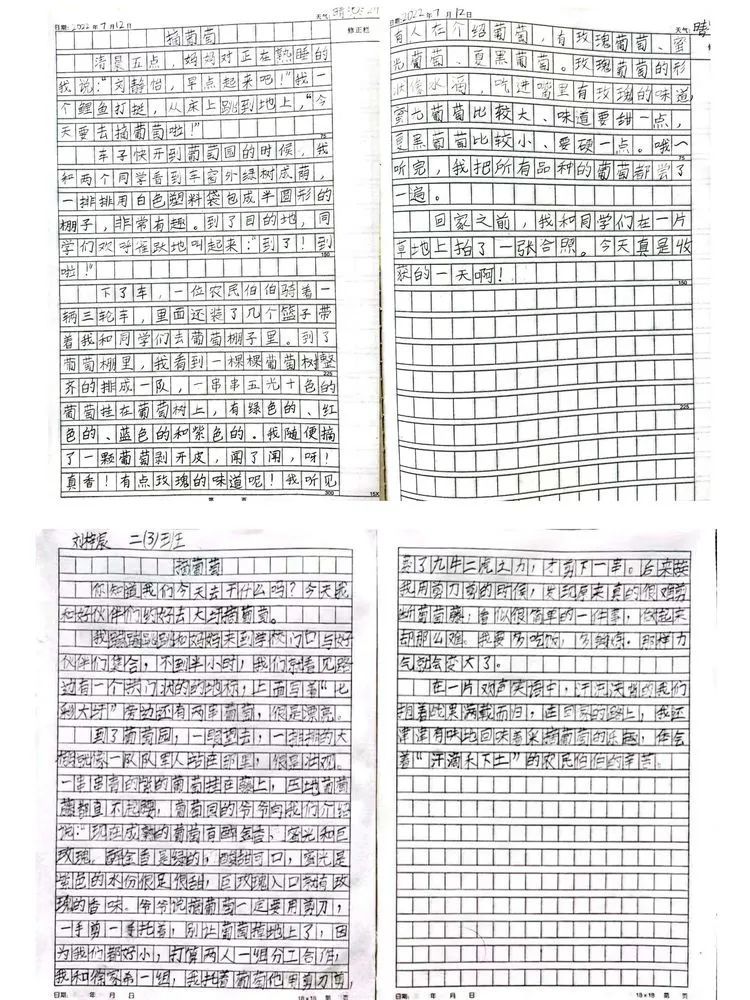 日期: 2022年7月12日 天气: 晴
修正栏
摘葡萄
清晨五点，妈妈对正在熟睡的
我说：“刘静怡，早点起来吧！”我一
个鲤鱼打挺，从床上跳到地上，“今
天要去摘葡萄啦！”
75
车子快开到葡萄园的时候，我
和两个同学看到车窗外绿树成荫，
一排排用白色塑料袋包成半圆形的
棚子，非常有趣。到了目的地，同
学们欢呼雀跃地叫起来：“到了！到
150
啦！”
下了车，一位农民伯伯骑着一
辆三轮车，里面还装了几个篮子带
着我和同学们去葡萄棚子里。到了
葡萄棚里，我看到一棵棵葡萄树整
225
齐的排成一队，一串串五光十色的
葡萄挂在葡萄树上，有绿色的、红
色的、蓝色的和紫色的。我随便摘
了一颗葡萄剥开皮，闻了闻，呀！
真香！有点玫瑰的味道呢！我听见
300
第 页
15X
日期: 2022年7月12日 天气: 晴
有人在介绍葡萄，有玫瑰葡萄、蜜
光葡萄、夏黑葡萄。玫瑰葡萄的形
状像水滴，吃进嘴里有玫瑰的味道，
蜜光葡萄比较大、味道要甜一点，
夏黑葡萄比较小、要硬一点。哦一
75
听完，我把所有品种的葡萄都尝了
一遍。
回家之前，我和同学们在一片
草地上拍了一张合照。今天真是收
150
获的一天啊！
225
刘梓辰 二(3)班
摘葡萄
你知道我们今天去干什么吗？今天我
和好伙伴们约好去大圩摘葡萄。
我蹦蹦跳跳和妈妈来到学校门口与好
伙伴们集合，不到半小时，我们就看见路
边有一个拱门状的的地标，上面写着“七
彩大圩”旁边还有两串葡萄，很是漂亮。
到了葡萄园，一眼望去，一排排的大
棚就像一队队军人站在那里，很是壮观。
一串串青的紫的葡萄挂在藤上，压地葡萄
藤都直不起腰，葡萄园的爷爷向我们介绍
说：“现在成熟的葡萄有醉金香、蜜光和巨
玫瑰，醉金香是绿的，酸甜可口，蜜光是
紫色的水份很足很甜，巨玫瑰入口就有玫
瑰的香味。爷爷说摘葡萄一定要用剪刀，
一手剪一手托着，别让葡萄撞地上了，因
为我们都好小，打算两人一组分工合作，
我和徐家弟一组，我托着葡萄他用剪刀剪，
日期: 年 月 日
18×18 第 页
费了九牛二虎之力，才剪下一串。后来轮
我用剪刀剪的时候，发现原来真的很难剪
断葡萄藤；看似很简单的一件事，做起来
却那么难。我要多吃饭，多锻炼。那样力
气就会变大了。
在一片欢声笑语中，汗流浃背的我们
抱着成果满载而归，在回家的路上，我还
津津有味地回味着采摘葡萄的乐趣，体会
着“汗滴禾下土”的农民伯伯的辛苦。
日期: 年 月 日
18×18 第 页